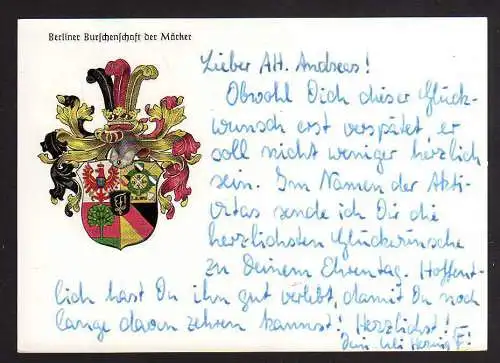 Berliner Burschenschaft der Märker
Lieber AH. Andreas!
Obwohl Dich dieser Glück-
wunsch erst verspätet, er
soll nicht weniger herzlich
sein. Im Namen der Akti-
vitas sende ich Dir die
herzlichsten Glückwünsche
zu Deinem Ehrentag. Hoffent-
lich hast Du ihn gut verlebt, damit Du noch
lange davon zehren kannst! Herzlichst!
Dein